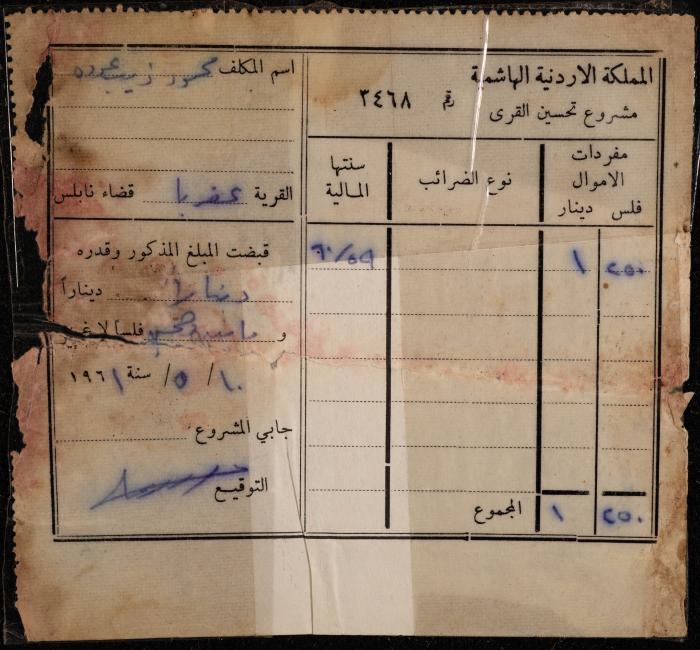 المملكة الاردنية الهاشمية
مشروع تحسين القرى
رقم ٣٤٦٨
مفردات الاموال
فلس دينار
نوع الضرائب
سنتها المالية
٢٥٠ ١ ٦٠/٥٩
المجموع ١ ٢٥٠
اسم المكلف محمود
القرية عقربا قضاء نابلس
قبضت المبلغ المذكور وقدره
ديناراً
و فلسا لا غير
١٠ / ٥ / سنة ١٩٦١
جابي المشروع
التوقيع